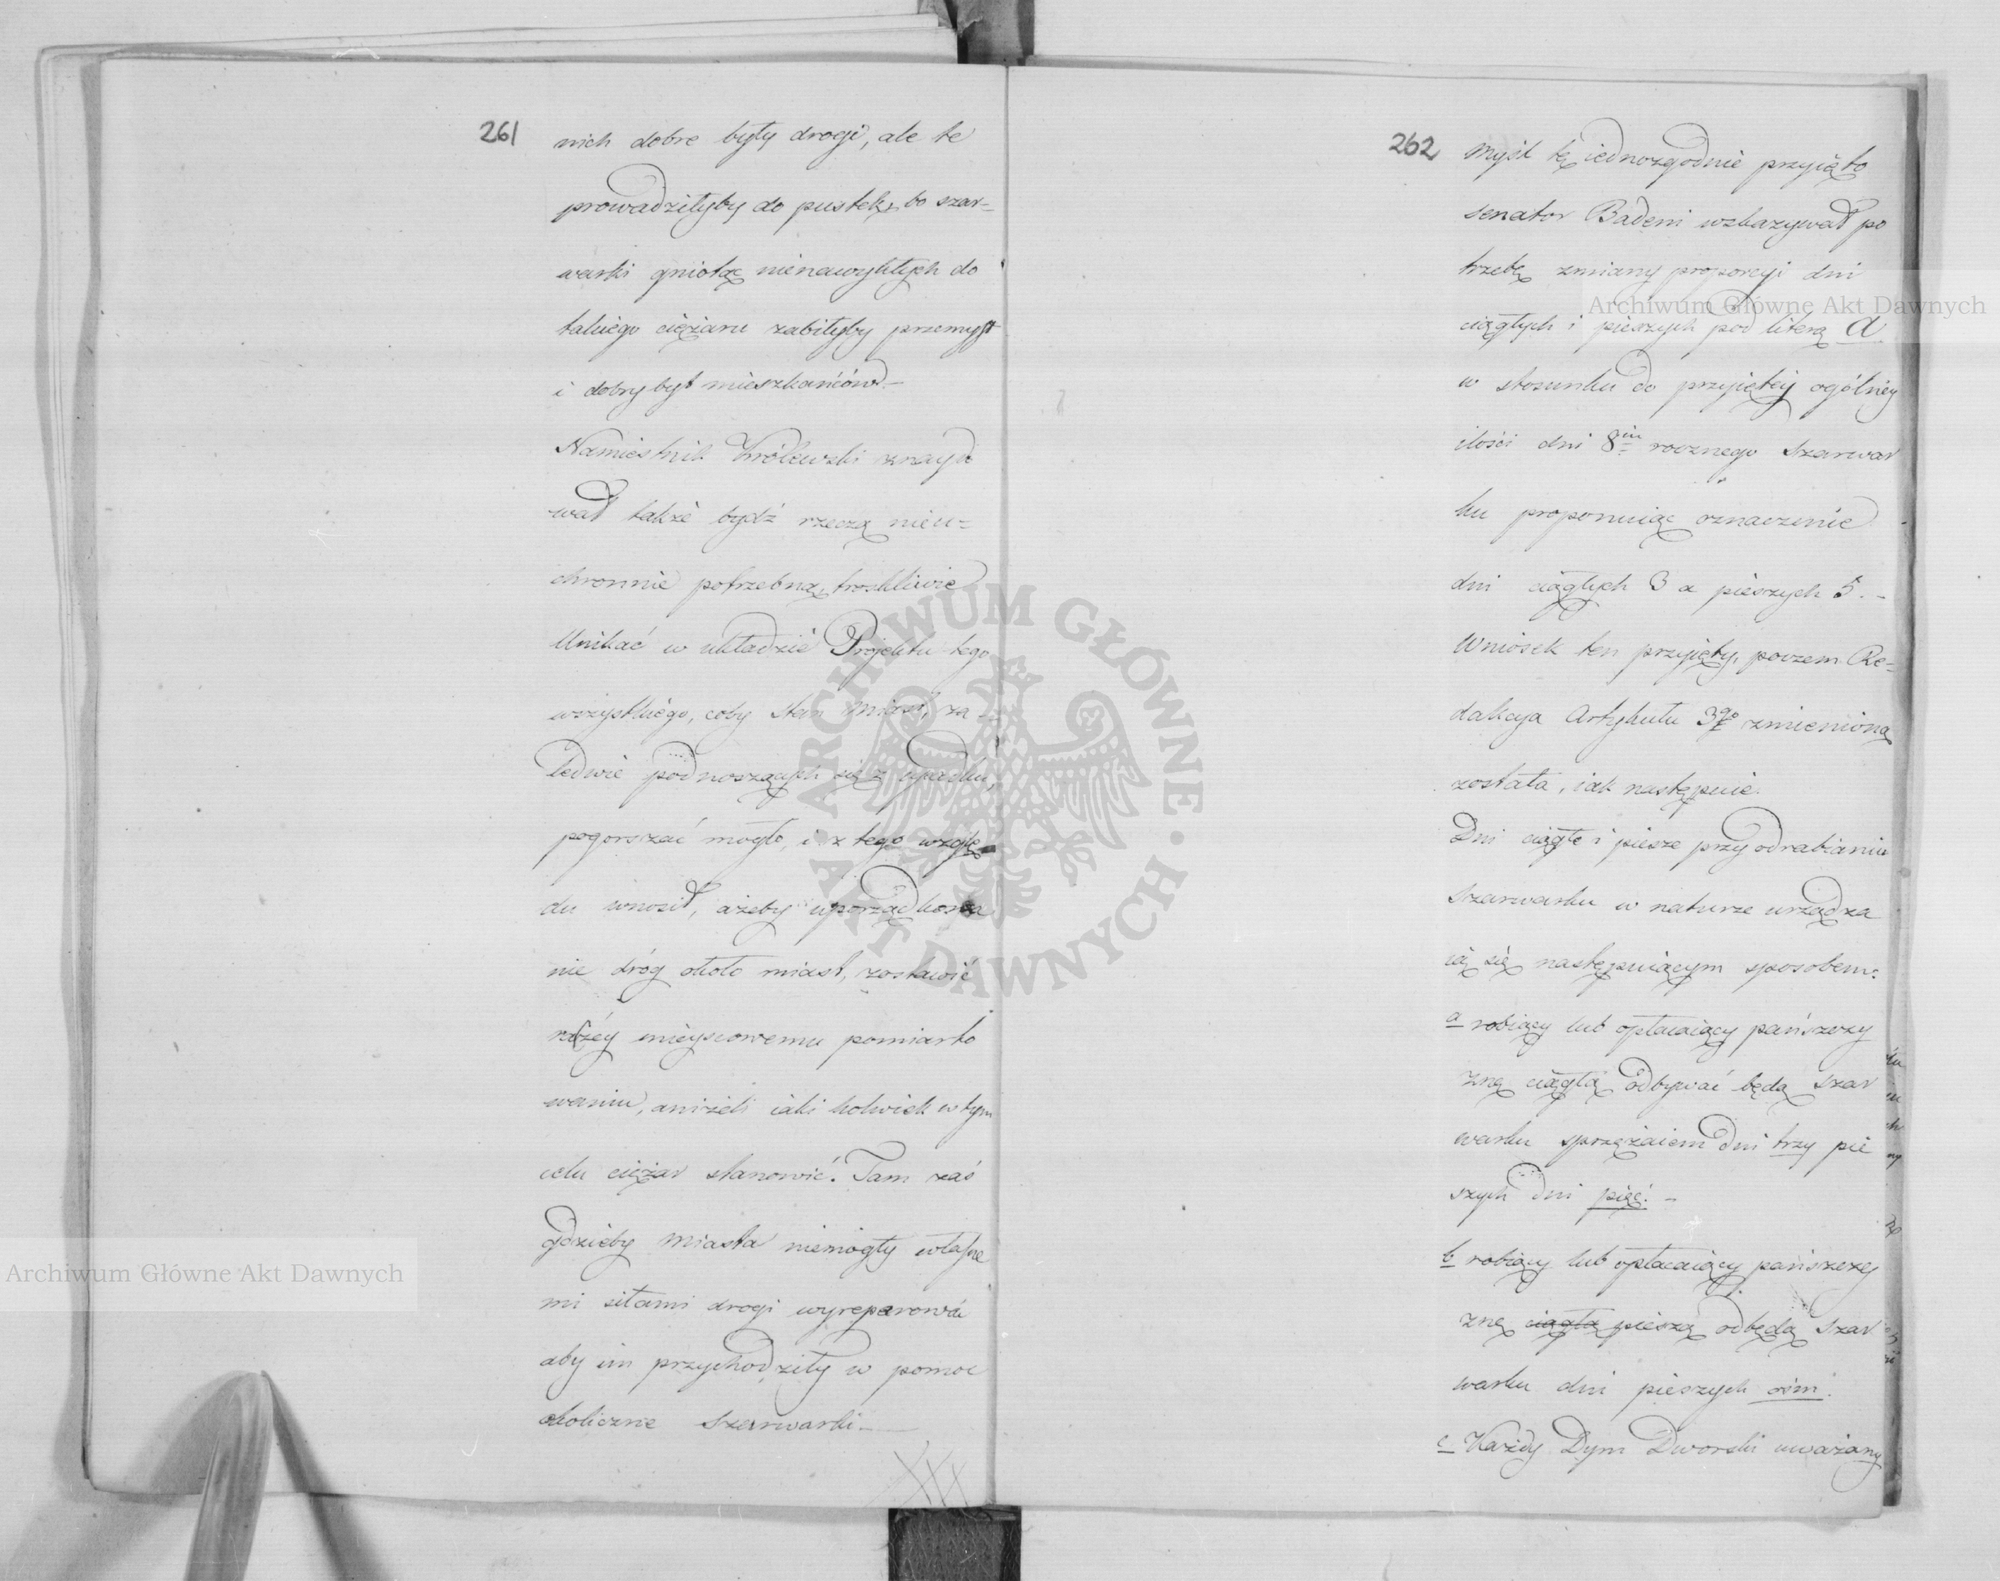 261
nich dobre były drogi, ale te
prowadziłyby do pustek, bo szar=
warki gniotąc nienawykłych do
takiego ciężaru zabiłyby przemysł
i dobry byt mieszkańców.—
Namiestnik Królewski znaydo
wał także bydź rzeczą nieu=
chronnie potrzebną, troskliwie
unikać w układzie Projektu tego
wszystkiego, coby stan miast, za=
ledwie podnoszących się z upadku,
pogorszać mogło, i z tego wzglę
du wnosił, ażeby uporządkowa
nie dróg około miast, zostawić
raczéy mieyscowemu pomiarko
waniu, aniżeli iaki kolwiek w tym
celu ciężar stanowić. Tam zaś
gdzieby miasta niemogły własne
mi siłami drogi wyreparować
aby im przychodziły w pomoc
okoliczne szarwarki.—
262
Myśl tę iednozgodnie przyięto
senator Badeni wskazywał po
trzebę zmiany proporcyi dni
ciągłych i pieszych pod literą a.
w stosunku do przyiętéj ogólnéy
ilości dni 8iu rocznego szarwar
ku proponuiąc oznaczenie
dni ciągłych 3 a pieszych 5.—
Wniosek ten przyięty, poczem Re=
dakcya Artykułu 3go zmienioną
została, iak następuie.
Dni ciągłe i piesze przy odrabianiu
szarwarku w naturze urządza
ią się następuiącym sposobem:
a robiący lub opłacaiący pańszczy
znę ciągłą odbywać będą szar
warku sprzężaiem dni trzy pie
szych dni pięć.—
b robiący lub opłacaiący pańszczy
znę ciągłą pieszą odbędą szar
warku dni pieszych ośm.
c Każdy Dym Dworski uważany
Archiwum Główne Akt Dawnych
Archiwum Główne Akt Dawnych
ARCHIWUM GŁÓWNE · AKT DAWNYCH ·